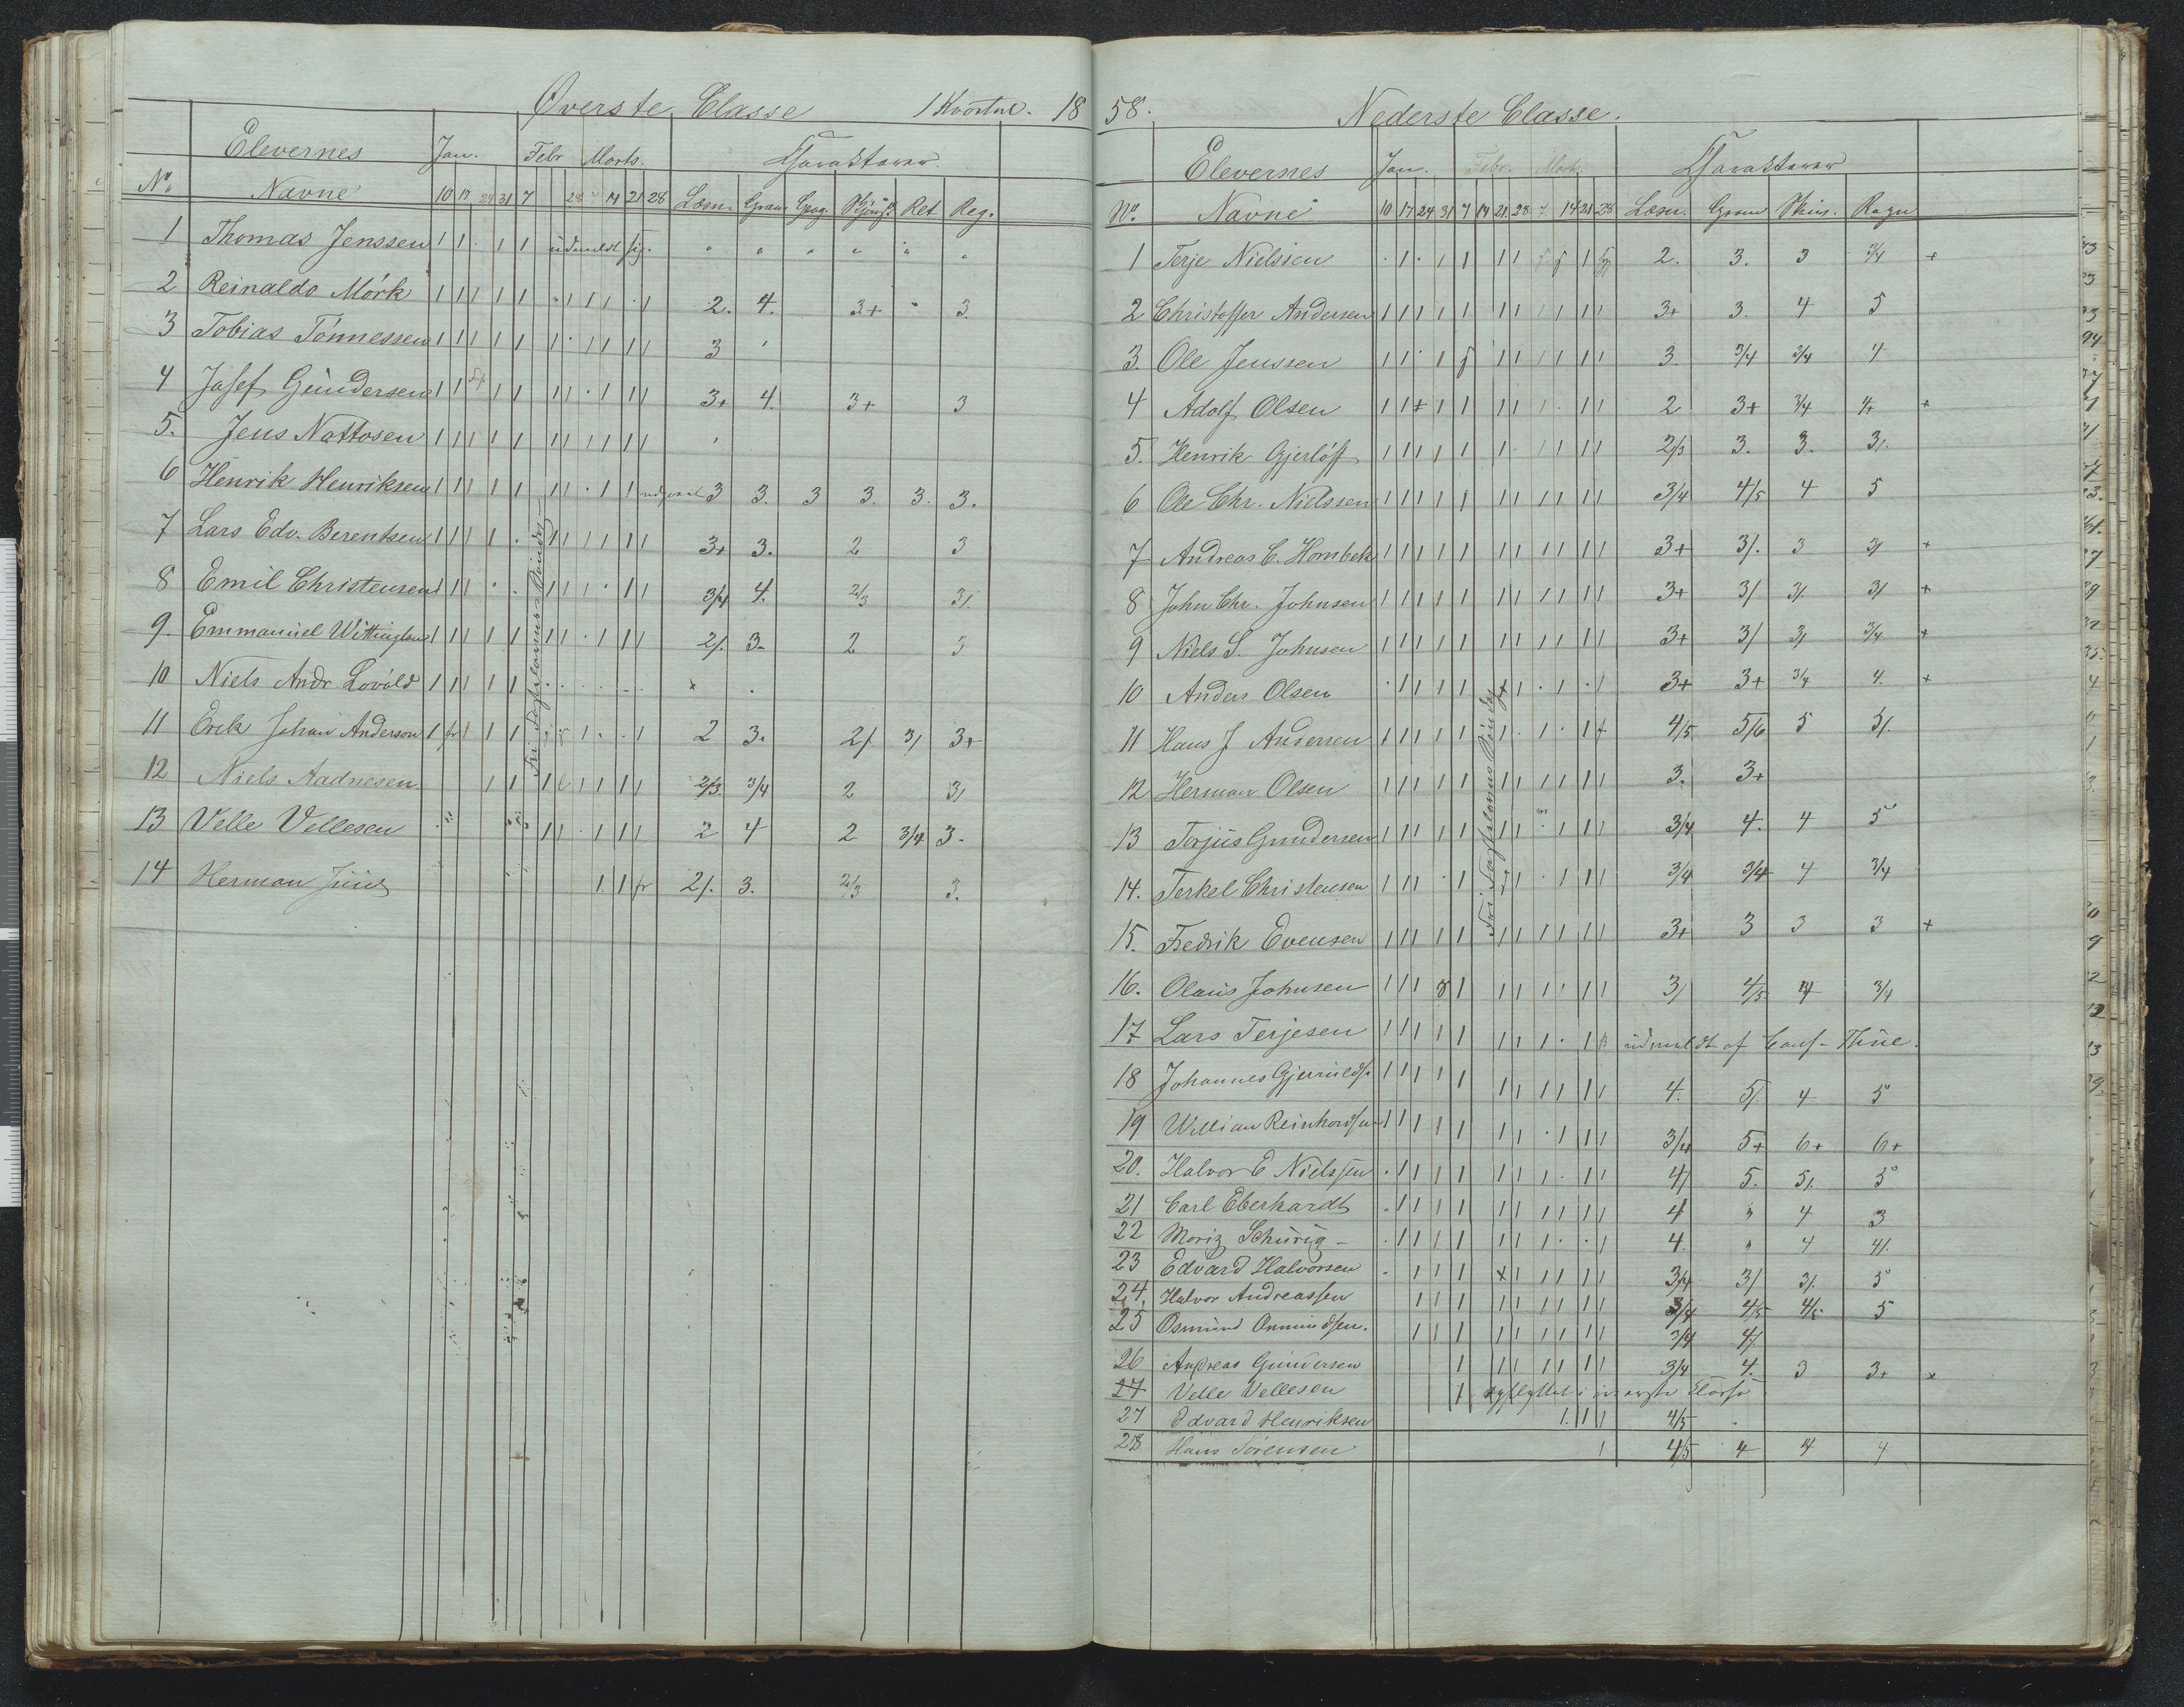 Øverste Classe 1 Kvartal. 18
Elevernes Jan. Febr Marts. Charakterer
No. Navne 10 17 24 31 7 28 7 14 21 28 Læsn. Gram Geog. Ret Reg.
1 Thomas Jenssen 1 1 . 1 1 udmeldt sig.
2 Reinaldo Mörk 1 1 1 1 1 . 1 1 1 . 1 2. 4. 3+ 3.
3 Tobias Tönnessen 1 1 1 1 1 1 . 1 1 1 1 3
4 Josef Gundersen 1 1 1 1 1 1 . 1 1 1 3+ 4. 3+ 3
5. Jens Nattosen 1 1 1 1 1 1 1 1 1 1 1
6 Henrik Henriksen 1 1 1 1 1 1 1 . 1 1 3 3. 3 3. 3. 3.
7 Lars Edv. Berentsen 1 1 1 1 . 1 1 1 1 1 1 3+ 3. 2 3
8 Emil Christensen 1 1 1 . . 1 1 1 . 1 1 3/4 4. 2/3 3/.
9. Emmanuel Wittington 1 1 1 1 1 1 1 . 1 1 1 2/. 3. 2 3
10 Niels Andr. Lovold 1 1 1 1 1
11 Erik Johan Anderson 1 fr 1 1 1 2 3. 2/. 3/ 3+
12 Niels Aadnesen 1 1 1 1 1 1 1 2/3. 3/4 2 3/
13 Velle Vellesen 1 1 . 1 1 1 2 4 2 3/4 3.
14 Herman Juul 1. 1 fr 2/. 3. 2/3 3.
Fri Fastelavns Søndag
58. Nederste Classe.
Elevernes Jan. Febr. Mart. Charakterer
No. Navne 10 17 24 31 7 14 21 28 7 14 21 28 Læsn. Gram Skriv. Regn
1 Terje Nielsien . 1 . 1 1 1 1 2. 3. 3 3/4 +
2 Christoffer Andersen 1 1 1 1 1 1 1 1 1 1 1 3+ 3. 4 5
3. Ole Jenssen 1 1 . 1 1 1 1 1 1 1 3. 3/4 3/4 4
4 Adolf Olsen 1 1 + 1 1 1 1 1 . 1 1 2 3+ 3/4 4+ +
5. Henrik Gjerlöff 1 1 1 1 1 1 . 1 1 1 1 2/3 3. 3. 3/.
6 Ole Chr. Nielssen 1 1 1 1 1 1 1 1 1 1 1 3/4 4/5 4 5
7 Andreas C. Hornbek 1 1 1 1 1 1 1 1 1 1 1 3+ 3/. 3 3/ +
8 John Chr. Johnsen 1 1 1 1 1 1 1 1 1 1 1 3+ 3/ 3/. 3/ +
9 Niels S. Johnsen 1 1 1 1 1 1 1 1 1 1 1 3+ 3/ 3/ 3/4 +
10 Anders Olsen . 1 1 1 1 + 1 . 1 . 1 3+ 3+ 3/4 4. +
11 Hans J. Andersen 1 1 1 1 . 1 . 1 . 1 f. 4/5 5/6 5 5/.
12 Herman Olsen 1 1 1 1 1 1 1 1 1 1 1 3. 3+
13 Torjus Gundersen 1 1 1 1 1 1 1 1 1 1 3/4 4. 4 5
14. Terkel Christensen 1 1 1 . 1 . 1 1 1 3/4 3/4 4 3/4
15. Fredrik Evensen 1 1 1 1 1 1 1 1 1 1 1 3+ 3 3 3 +
16. Olaus Johnsen 1 1 1 1 1 1 1 1 1 1 3/ 4/5 4 3/4
17 Lars Terjesen 1 1 1 1 1 1 1 1 . 1 udmeldt af
18 Johannes Gjerulds. 1 1 1 1 1 1 1 1 1 1 1 4. 5/. 4 5
19 William Reinhardsen 1 1 1 1 1 1 1 . 1 1 1 3/4 5+ 6+ 6+
20. Halvor E Nielssen . 1 1 1 1 1 1 1 . 1 1 4/ 5. 5/. 5
21 Carl Eberhardt . 1 1 1 1 1 1 1 1 1 1 4 " 4 3
22 Moriz Schürig . 1 1 1 1 1 1 1 . . 1 4. " 4 4/.
23 Edvard Halvorsen . 1 1 1 x 1 1 1 1 1 3/4 3/ 3/. 5
24. Halvor Andreassen 1 1 1 1 1 1 1 1 1 3/4 4/5 4/5 5
25 Osmund Onmundsen. 1 1 1 1 1 1 1 1 1 3/4 4/.
26 Andreas Gundersen 1 1 1 1 1 1 1 3/4 4. 3 3+ x
27 Velle Vellesen 1 opflyttet i Classe
27 Edvard Henriksen 1. 1 1 4/5 .
28 Hans Sørensen 1 4/5 4 4 4
Fri Fastelavns Søndag